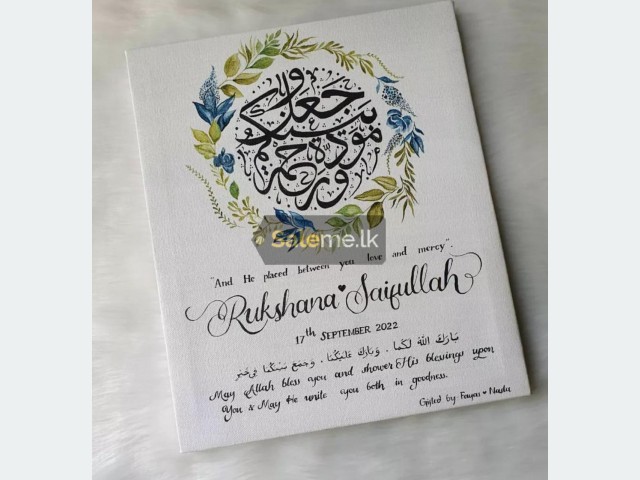 وجعل بينكم مودة ورحمة
Saleme.lk
"And He placed between you love and mercy".
Rukshana ♥ Saifullah
17th SEPTEMBER 2022
بَارَكَ اللهُ لَكُمَا . وَبَارَكَ عَلَيْكُمَا . وَجَمَعَ بَيْنَكُمَا فِي خَيْرٍ
May Allah bless you and shower His blessings upon
You & May He unite you both in goodness.
Gifted by: Fayas ♥